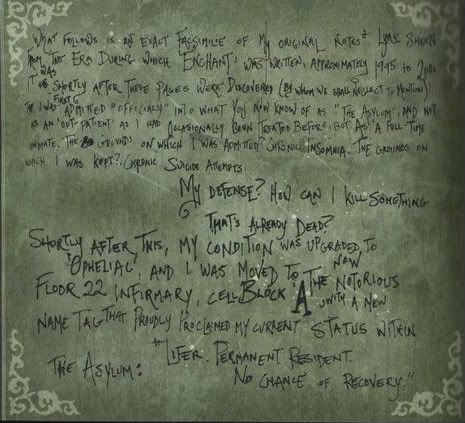 What follows is an exact facsimilie of my original notes & lyric sheen
from the era during which "Enchant" was written, approxmately 1995 to 2000.
It was shortly after these pages were discovered (by whom we shall neglect to mention)
that I was first admitted "officially" into what you now know of as "The Asylum"; and not
as an 'out-patient' as I had occasionally been treated before, but as a full-time
inmate. The grounds on which I was admitted? Chronic insomnia. The grounds on
which I was kept? Chronic suicide attempts.
My defense? How can I kill something
that's already dead?
Shortly after this, my condition was upgraded to
'Ophelial', and I was moved to the now notorious
Floor 22 infirmary, cell block 'A', with a new
name tag that proudly proclaimed my current status within
The Asylum:
"Lifer. Permanent resident.
No chance of recovery."